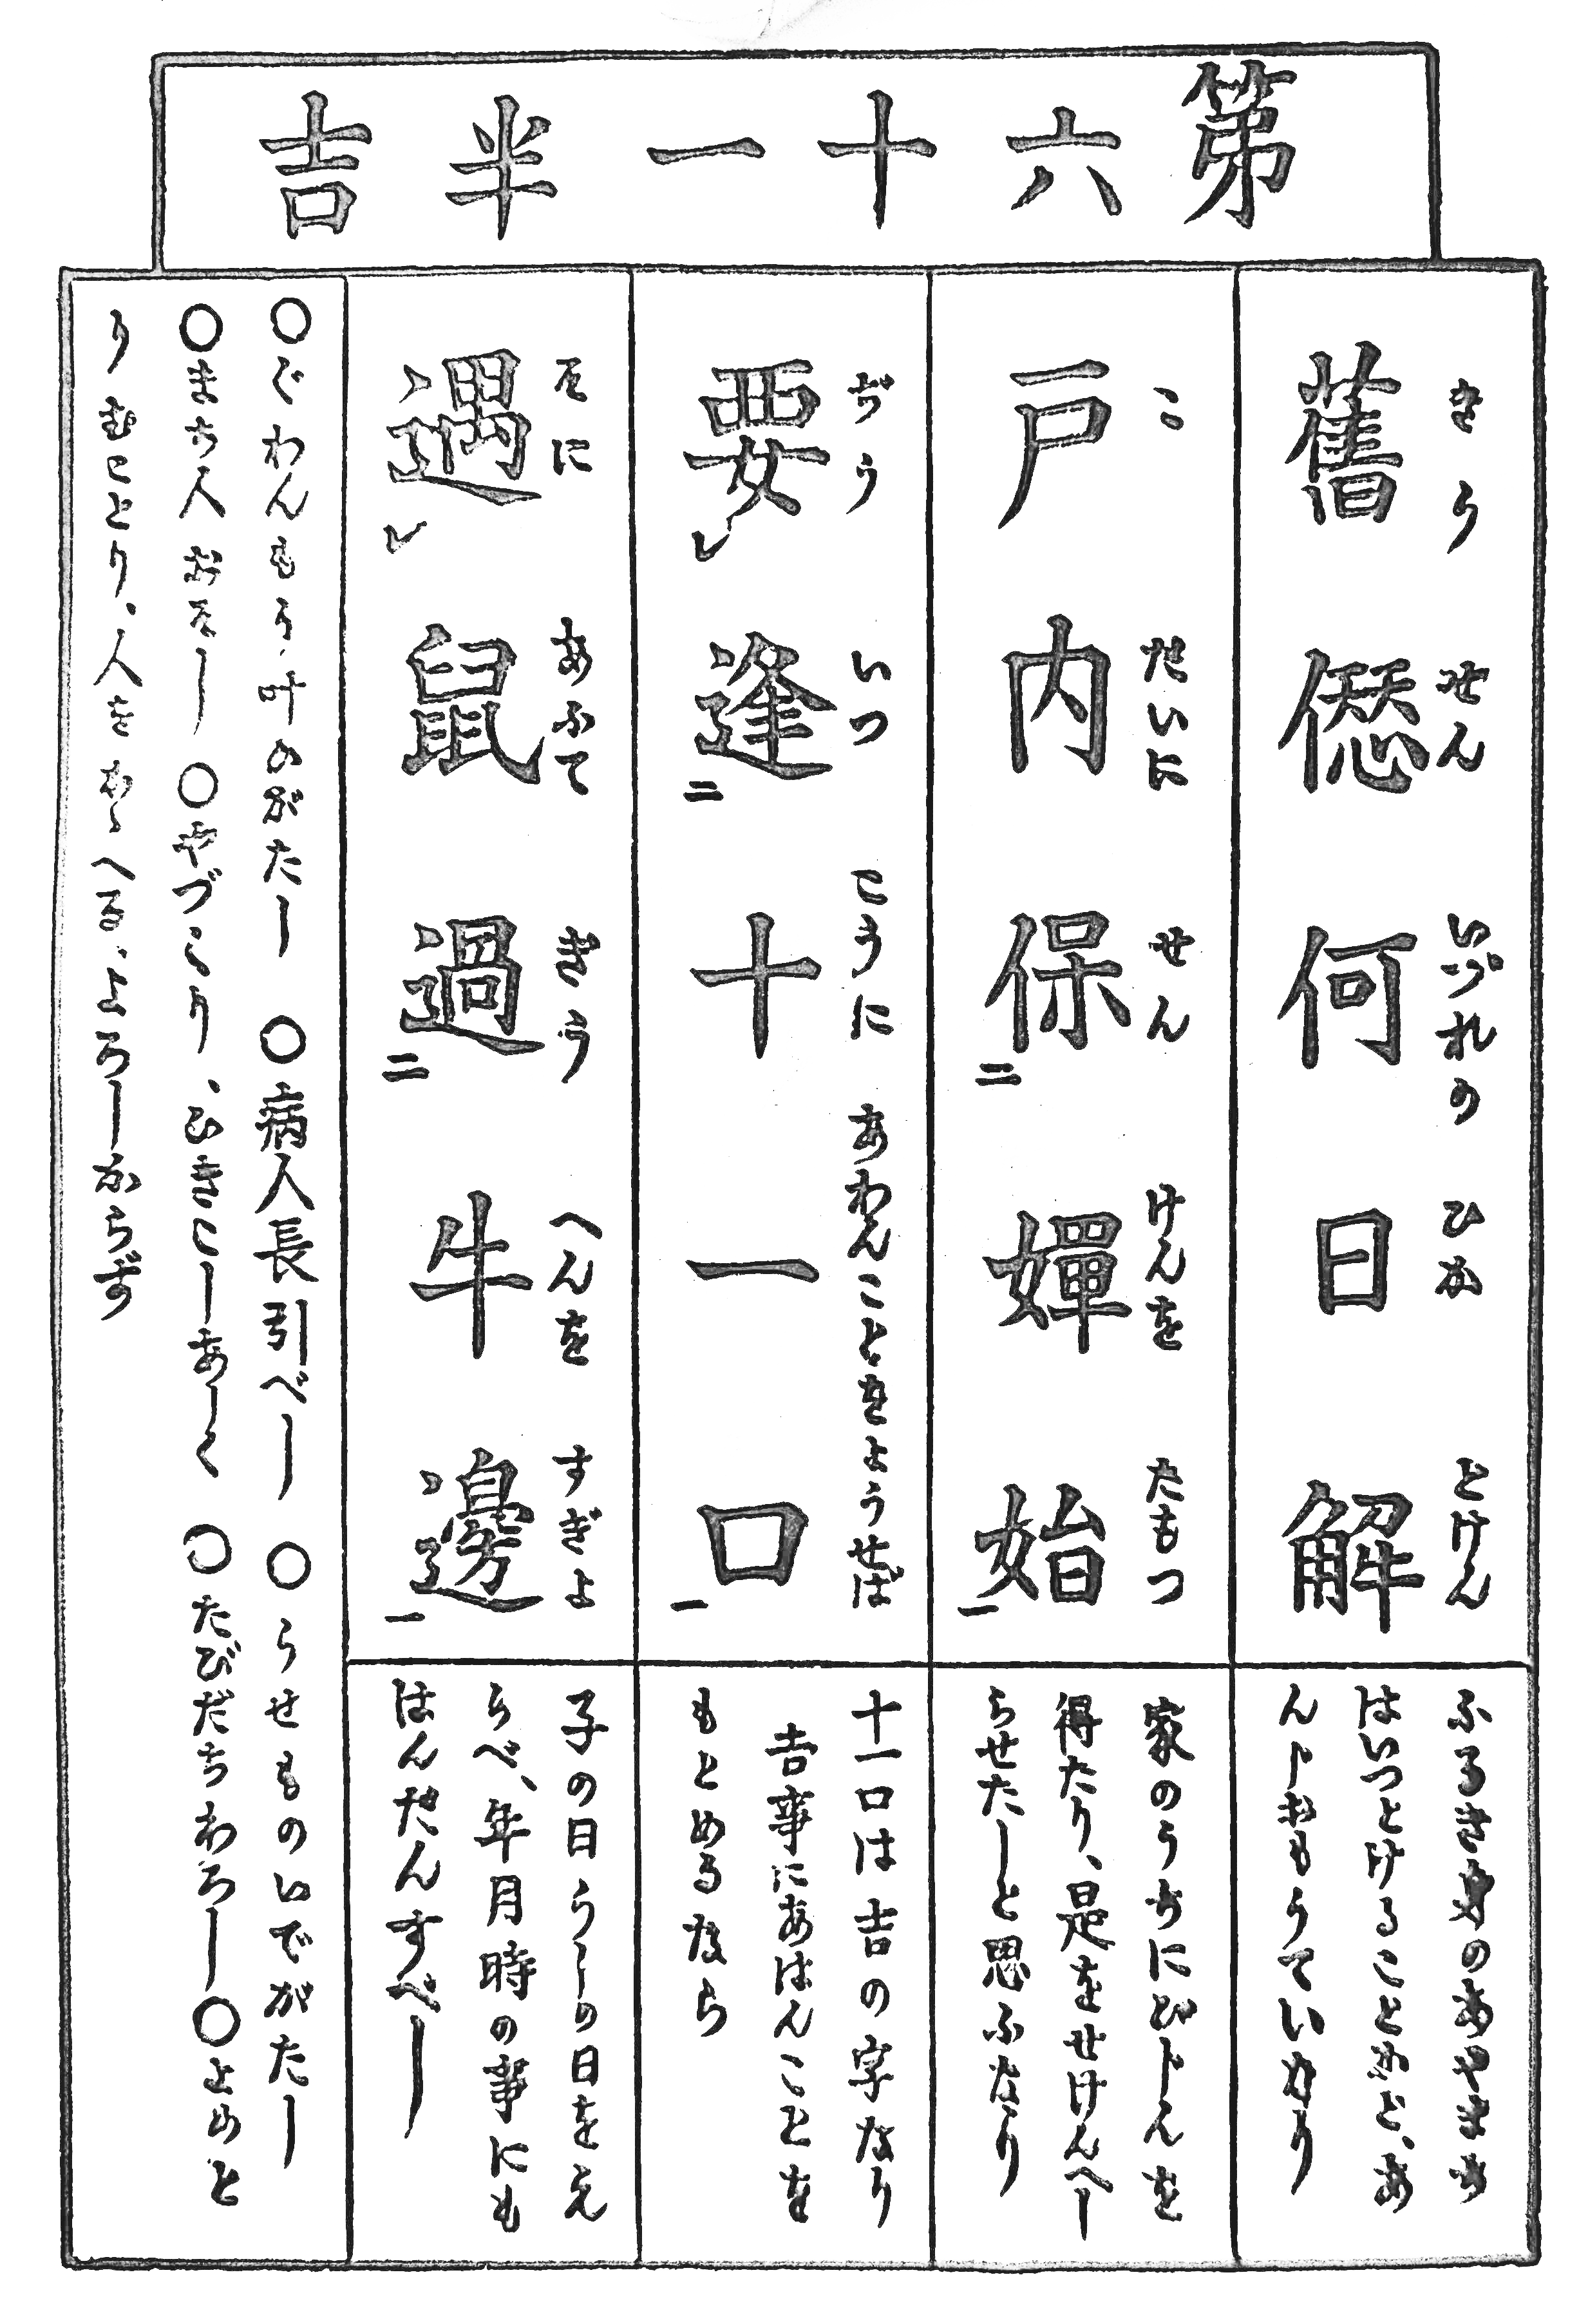 第六十一半吉
舊僁何日解
きう せん いづれの ひか とけん
ふるき身のあやまち
はいつとけることかと、あ
んじおもうていかり
戸内保嬋始
こ だいに せん けんを たもつ
家のうちにびじんを
得たり、是をせけんへし
らせたしと思ふなり
要レ逢二十一口一
ぢう いつ こうに あわんことをようせば
十一口は吉の字なり
吉事にあはんことを
もとめるなら
遇レ鼠過二牛邊一
子に あふて ぎう へんを すぎよ
子の日うしの日をえ
らべ、年月時の事にも
はんだんすべし
〇ぐわんもう叶のがたし 〇病人長引べし 〇うせものいでがたし
〇まち人おそし 〇やづくり、ひきこしあしく 〇たびだちわろし〇よめと
りむことり、人をかゝへる、よろしからず